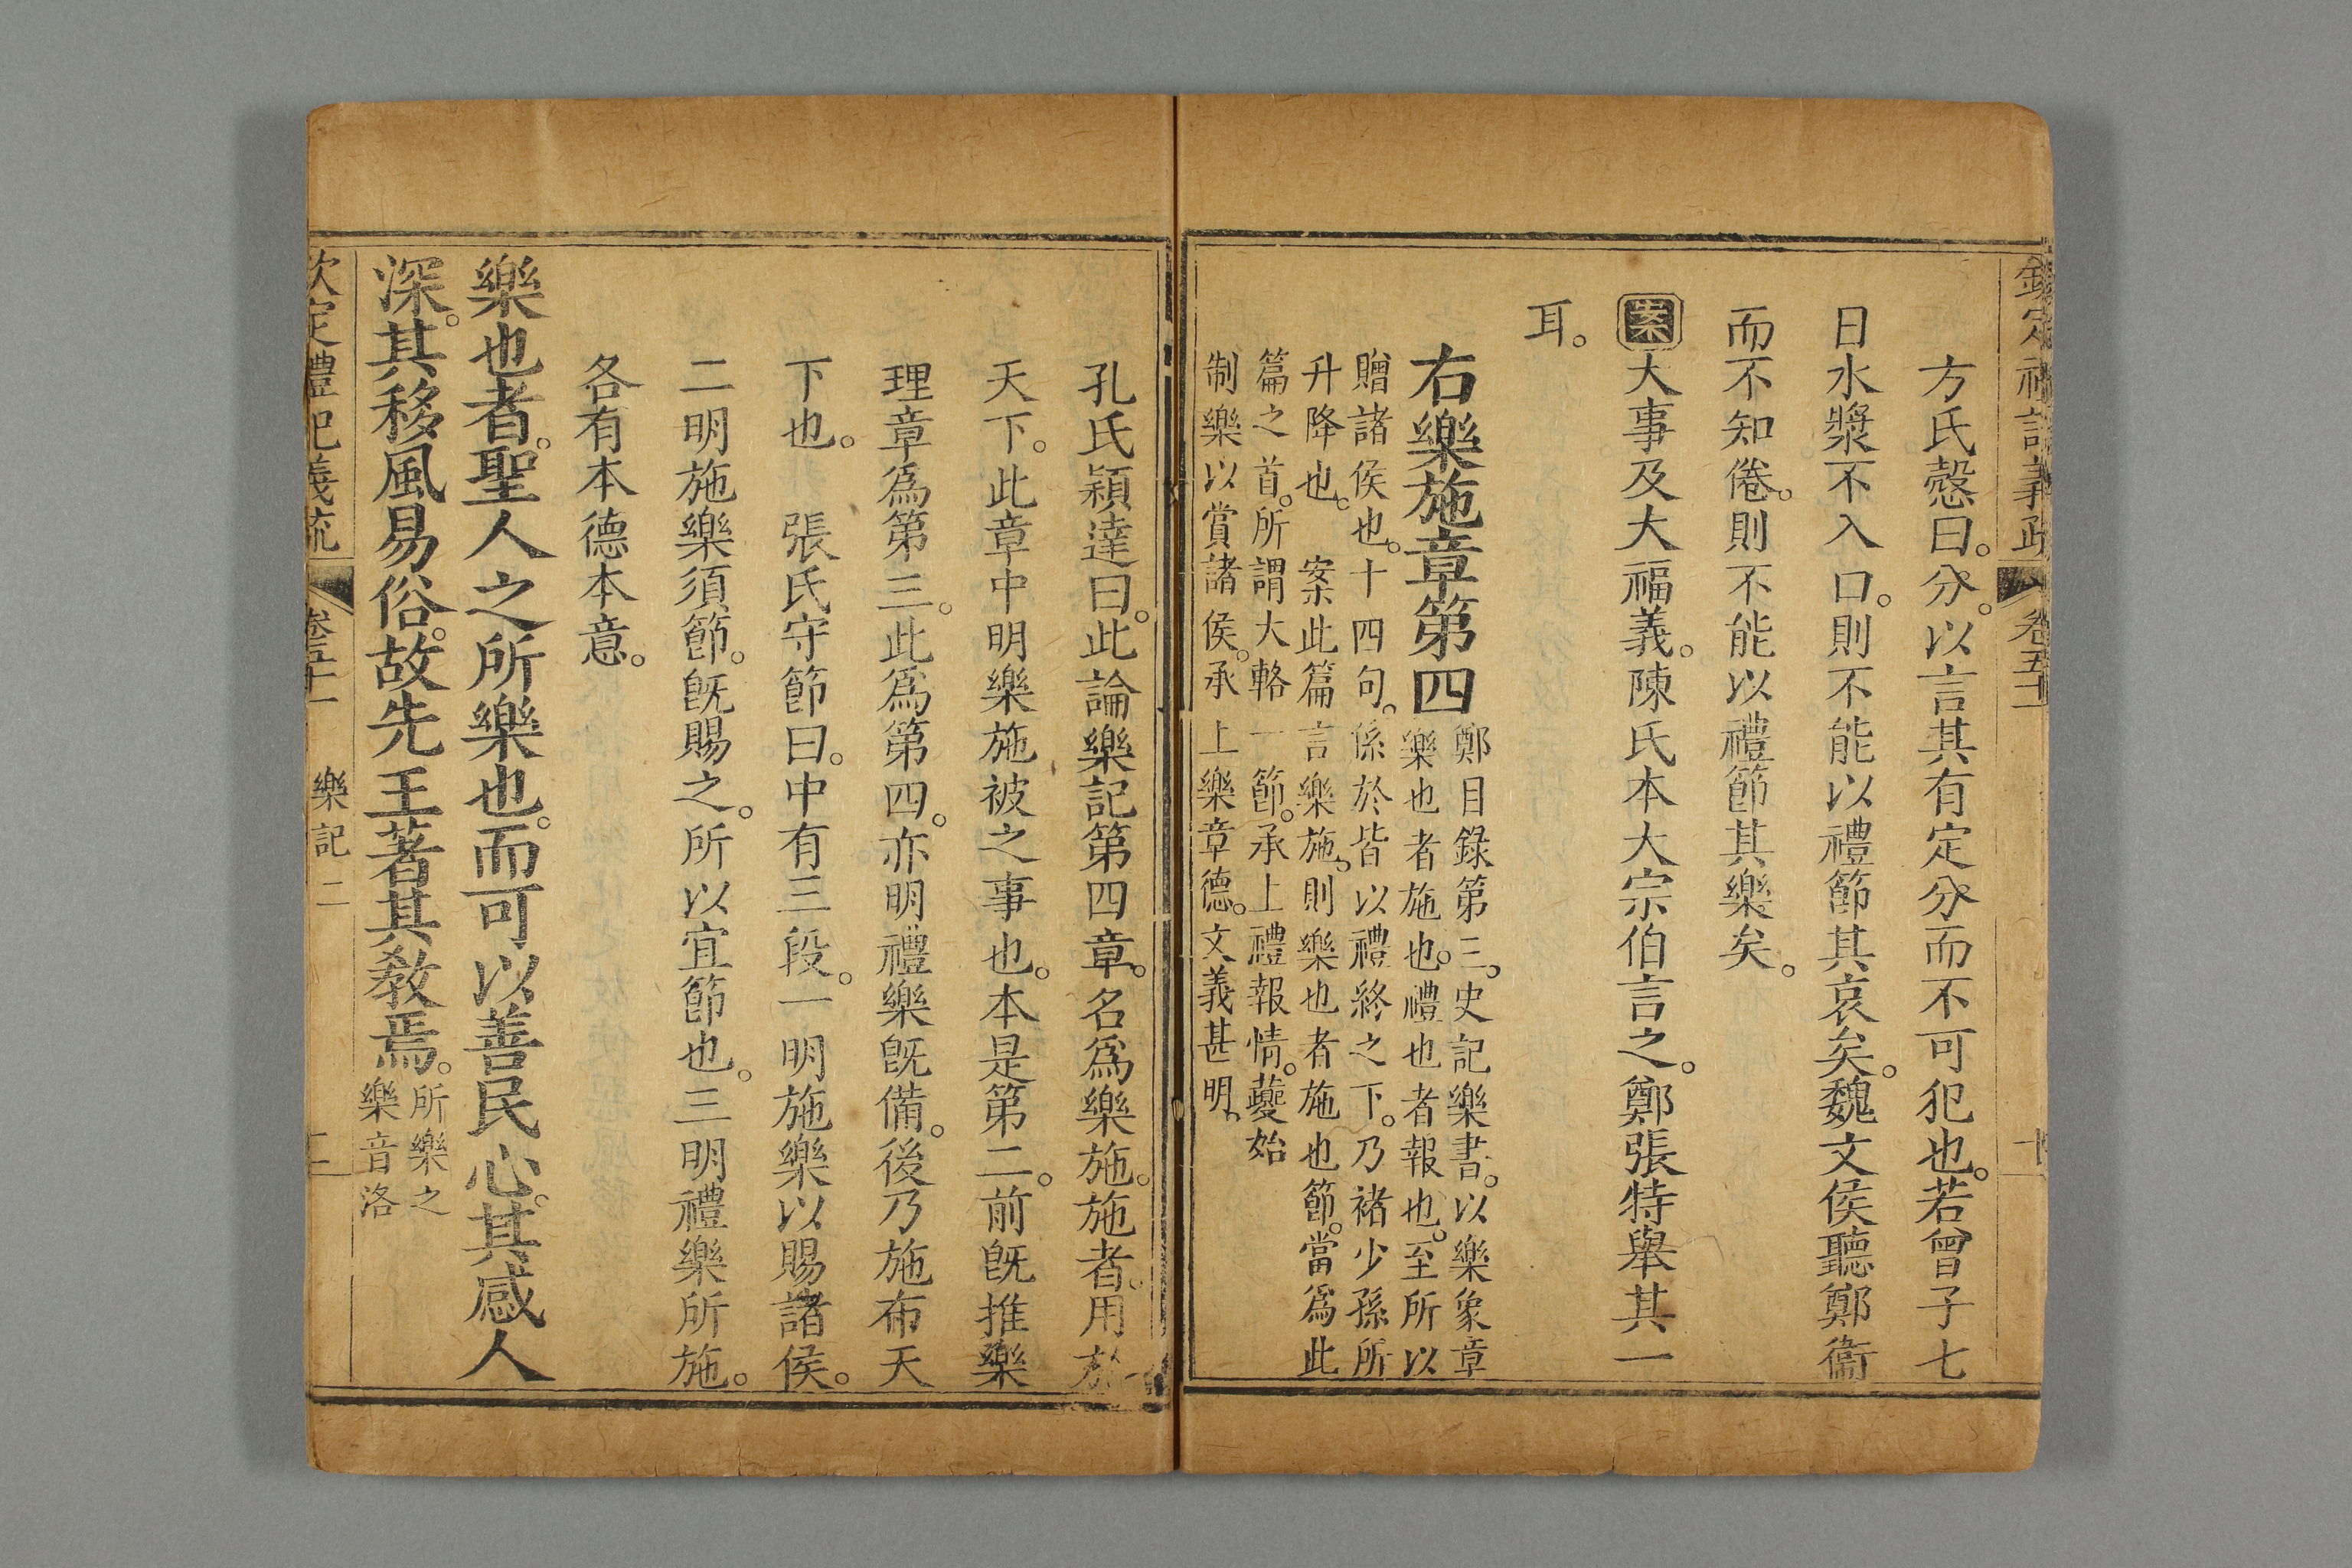 欽定禮記義疏 卷五十一
方氏慤曰。分。以言其有定分而不可犯也。若曾子七
日水漿不入口。則不能以禮節其哀矣。魏文侯聽鄭衞
而不知倦。則不能以禮節其樂矣。
案大事及大福義。陳氏本大宗伯言之。鄭張特舉其一
耳。
右樂施章第四
鄭目錄第三。史記樂書。以樂象章
樂也者施也。禮也者報也。至所以
贈諸侯也。十四句。係於皆以禮終之下。乃褚少孫所
升降也。 案此篇言樂施。則樂也者施也節。當爲此
篇之首。所謂大輅一節。承上禮報情。蘷始
制樂以賞諸侯。承上樂章德。文義甚明、
孔氏穎達曰。此論樂記第四章。名爲樂施。施者。用於
天下。此章中明樂施被之事也。本是第二。前旣推樂
理章爲第三。此爲第四。亦明禮樂旣備。後乃施布天
下也。 張氏守節曰。中有三段。一明施樂以賜諸侯。
二明施樂須節。旣賜之。所以宜節也。三明禮樂所施。
各有本德本意。
樂也者。聖人之所樂也。而可以善民心。其感人
深。其移風易俗。故先王著其敎焉。
所樂之
樂音洛
欽定禮記義疏 卷五十一 樂記二